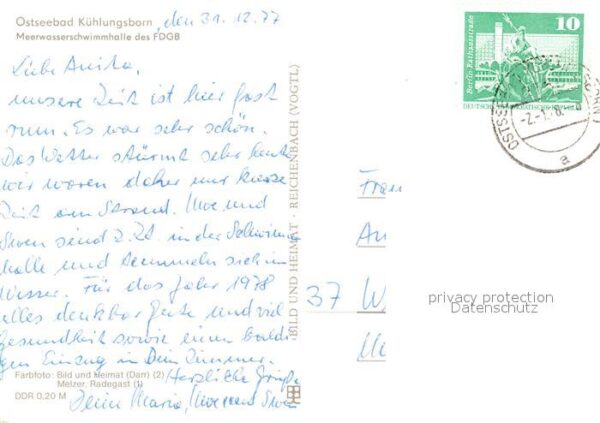 Ostseebad Kühlungsborn, den 31.12.77
Meerwasserschwimmhalle des FDGB
Liebe Anita,
unsere Zeit ist hier fast
rum. Es war sehr schön.
Das Wetter stürmt sehr heute
wir waren daher nur kurze
Zeit am Strand. Uwe und
Swen sind z.Zt. in der Schwimm
halle und tummeln sich im
Wasser. Für das Jahr 1978
alles denkbar Gute und viel
Gesundheit sowie einen baldi
gen Einzug in Dein Zimmer.
Herzliche Grüße
Deine Maria, Uwe und Swen
Farbfoto: Bild und Heimat (Darr) (2)
Melzer, Radegast (1)
DDR 0,20 M
BILD UND HEIMAT · REICHENBACH (VOGTL)
10
Berlin, Rathausstraße
-2.-1.78
a
Frau
An
37 W
privacy protection
Datenschutz